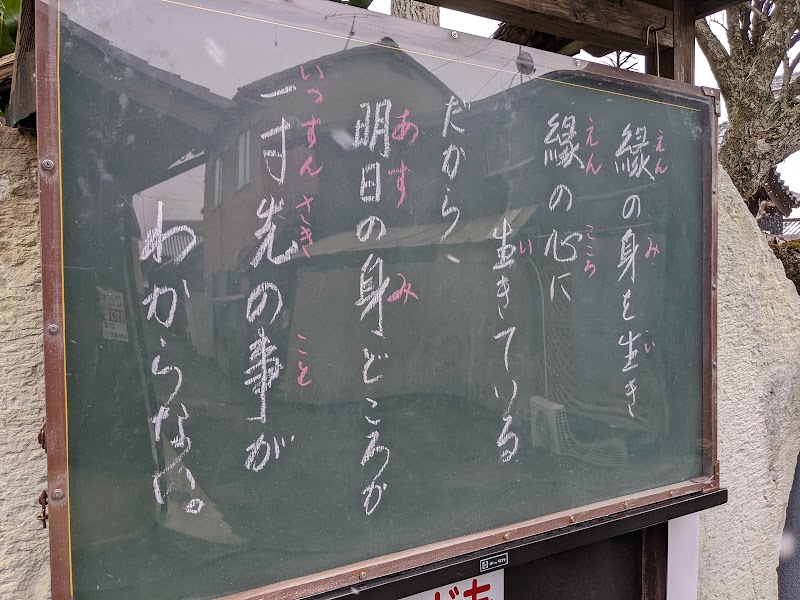 縁の身を生き
えん み い
縁の心に
えん こころ
生きている
い
だから、
明日の身どころか
あす み
一寸先の事が
いっすんさき こと
わからない。